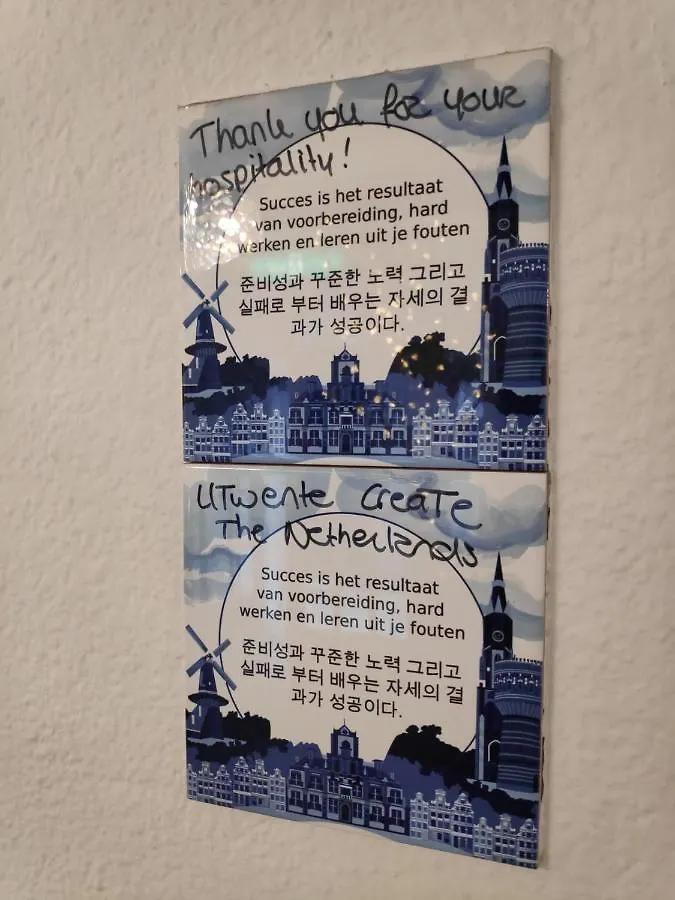 Thank you for your
hospitality!
Succes is het resultaat
van voorbereiding, hard
werken en leren uit je fouten
준비성과 꾸준한 노력 그리고
실패로 부터 배우는 자세의 결
과가 성공이다.
UTwente CreaTe
The Netherlands
Succes is het resultaat
van voorbereiding, hard
werken en leren uit je fouten
준비성과 꾸준한 노력 그리고
실패로 부터 배우는 자세의 결
과가 성공이다.